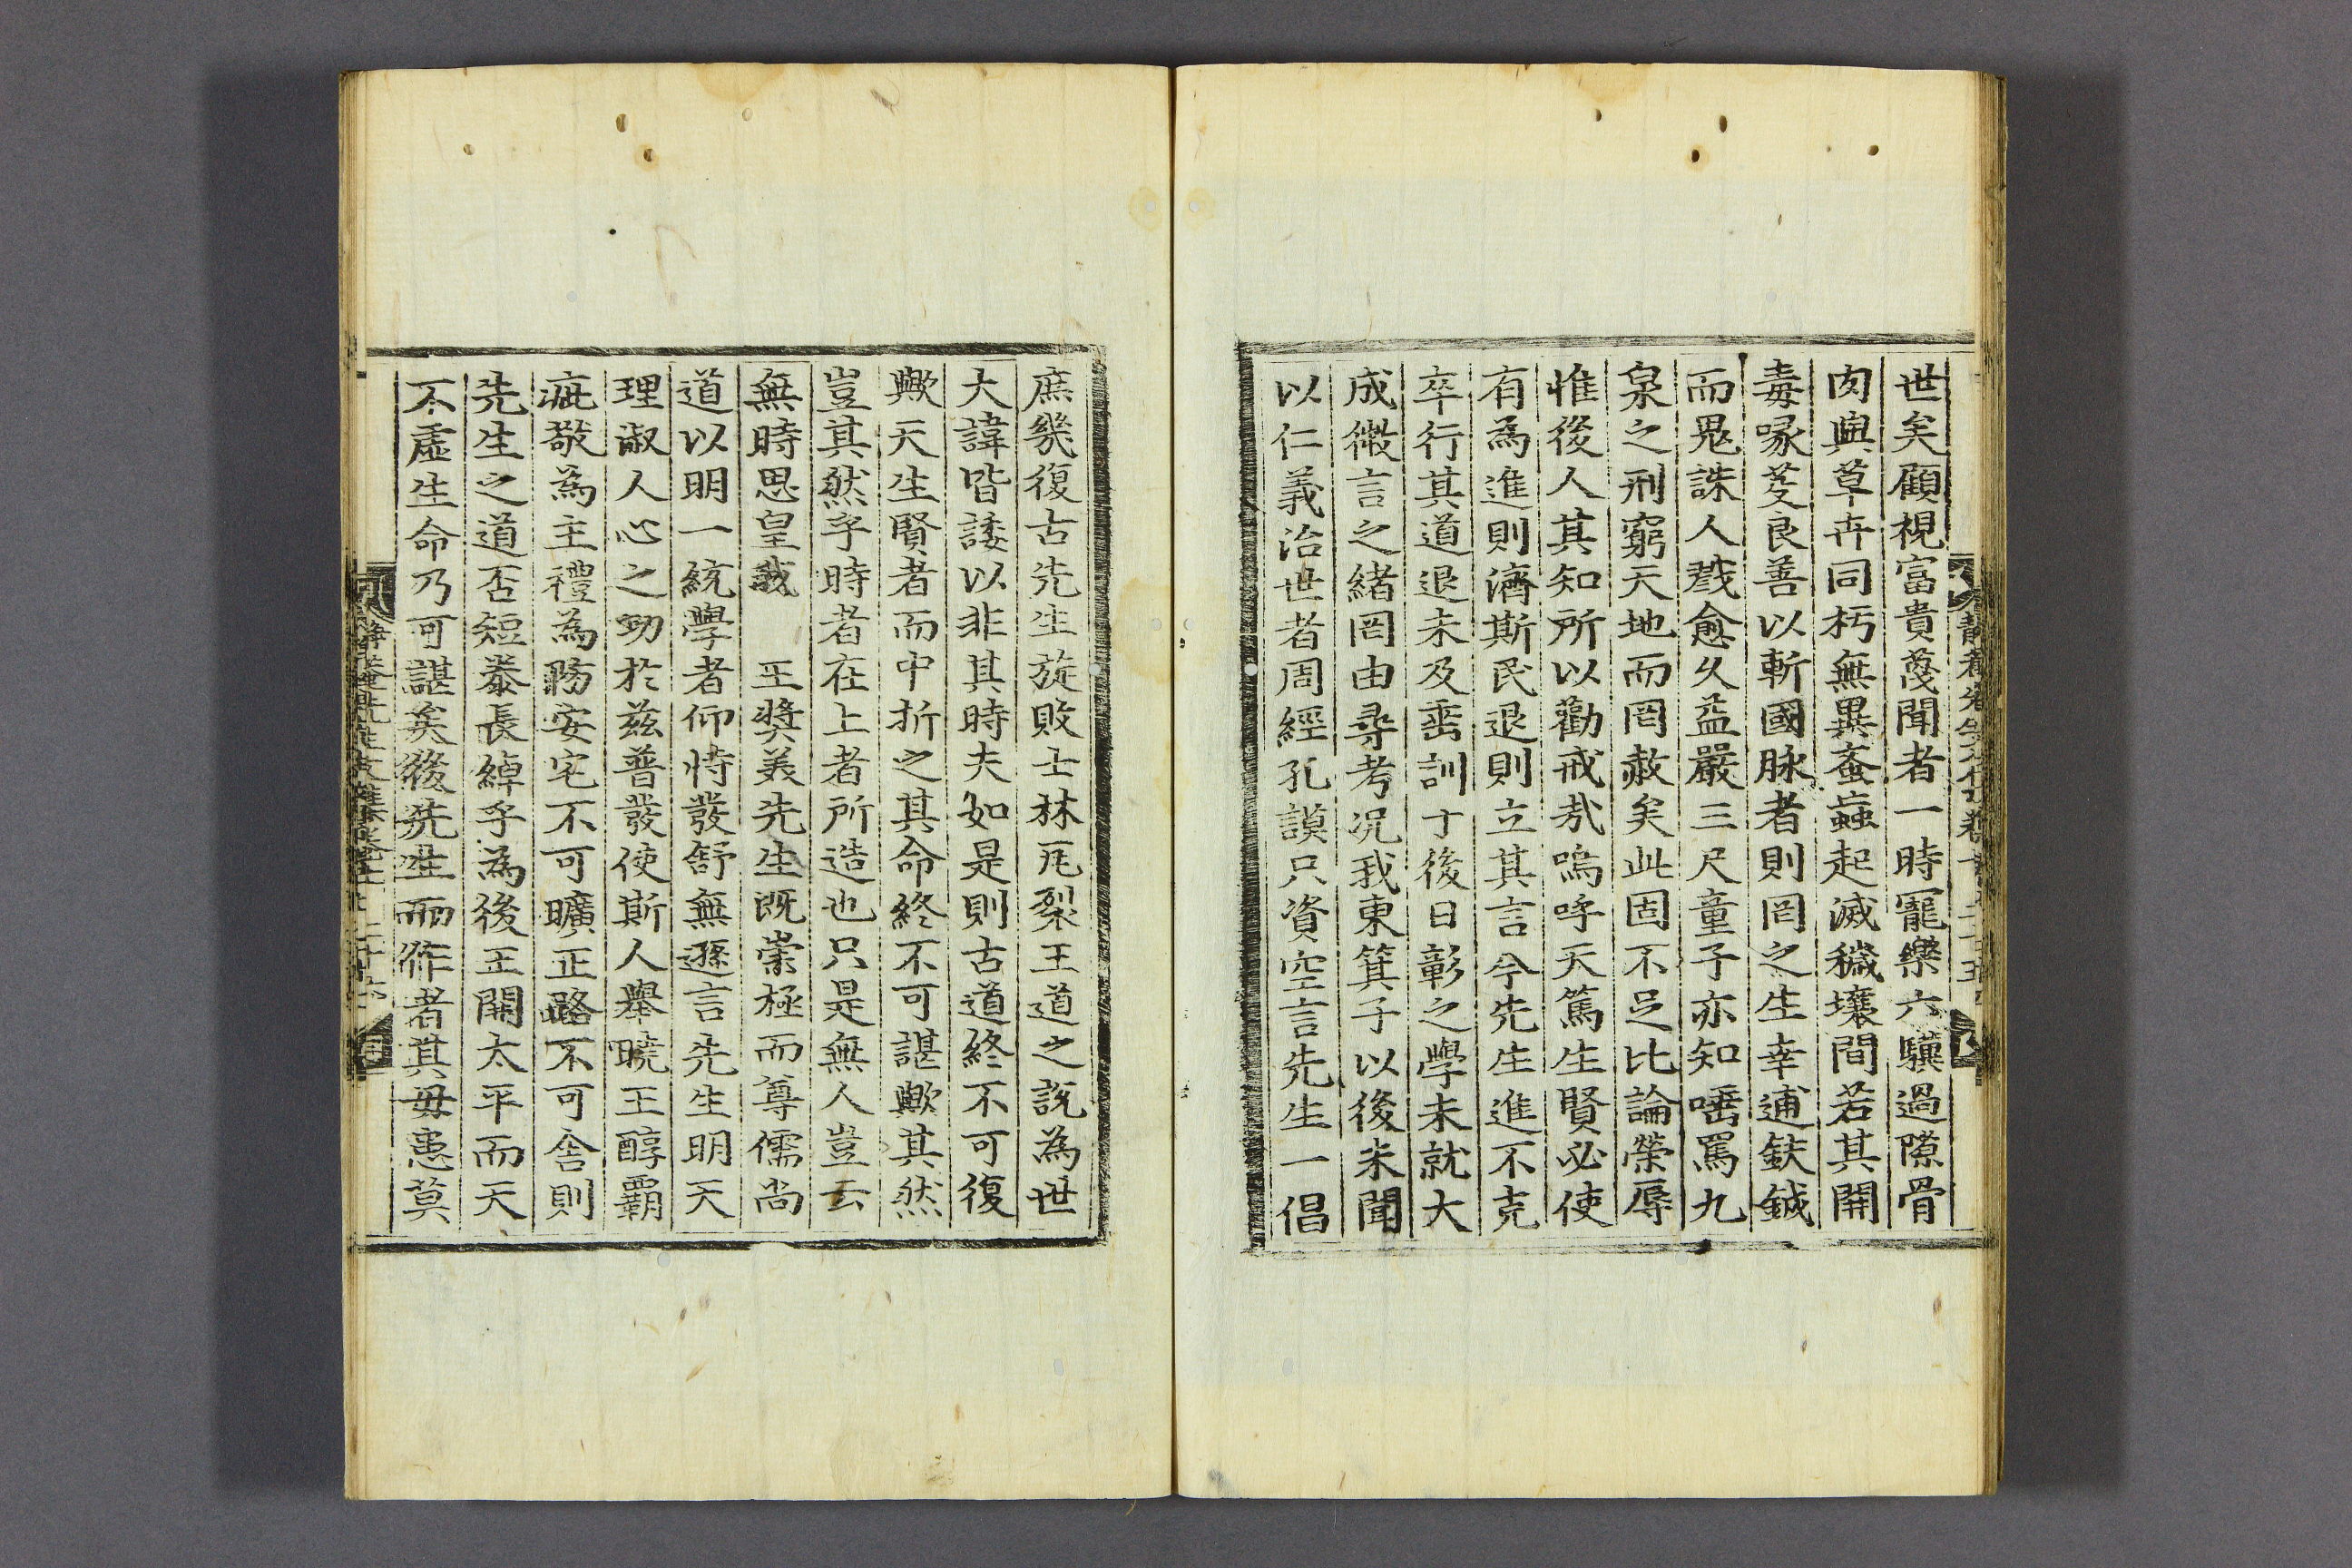 世矣顧視富貴蔑聞者一時寵樂六驥過隙骨
肉與草卉同朽無異蚉蝱起滅穢壤間若其開
毒喙芟良善以斬國脉者則罔之生幸逋鈇鉞
而鬼誅人戮愈久益嚴三尺童子亦知唾罵九
泉之刑窮天地而罔赦矣此固不足比論榮辱
惟後人其知所以勸戒㢤嗚呼天篤生賢必使
有爲進則濟斯民退則立其言今先生進不克
卒行其道退未及垂訓于後日彰之學未就大
成微言之緖罔由尋考况我東箕子以後未聞
以仁義治世者周經孔謨只資空言先生一倡
庶幾復古先生旋敗士林瓦裂王道之說為世
大諱皆諉以非其時夫如是則古道終不可復
歟天生賢者而中折之其命終不可諶歟其然
豈其然乎時者在上者所造也只是無人豈云
無時思皇我 王奬美先生旣崇極而尊儒尚
道以明一統學者仰恃發舒無遜言先生明天
理淑人心之功於兹普發使斯人舉曉王醇覇
疵敬為主禮為防安宅不可曠正路不可舍則
先生之道否短泰長綽乎為後王開太平而天
不虛生命乃可諶矣後先生而作者其毋患莫
靜菴先生文集